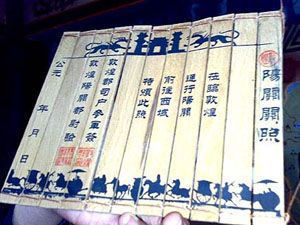 陽關關照
在臨敦煌
通行陽關
前往西域
特頒此照
敦煌郡司戶參軍簽
敦煌陽關都尉驗
公元 年 月 日